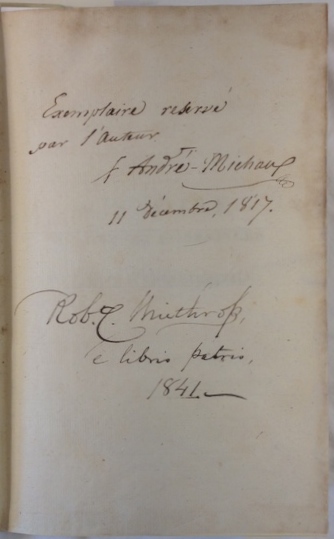 Exemplaire reservé
par l'auteur
f André-Michaux
11 décembre, 1817.
Rob. C. Winthrop,
e libris patris,
1841.